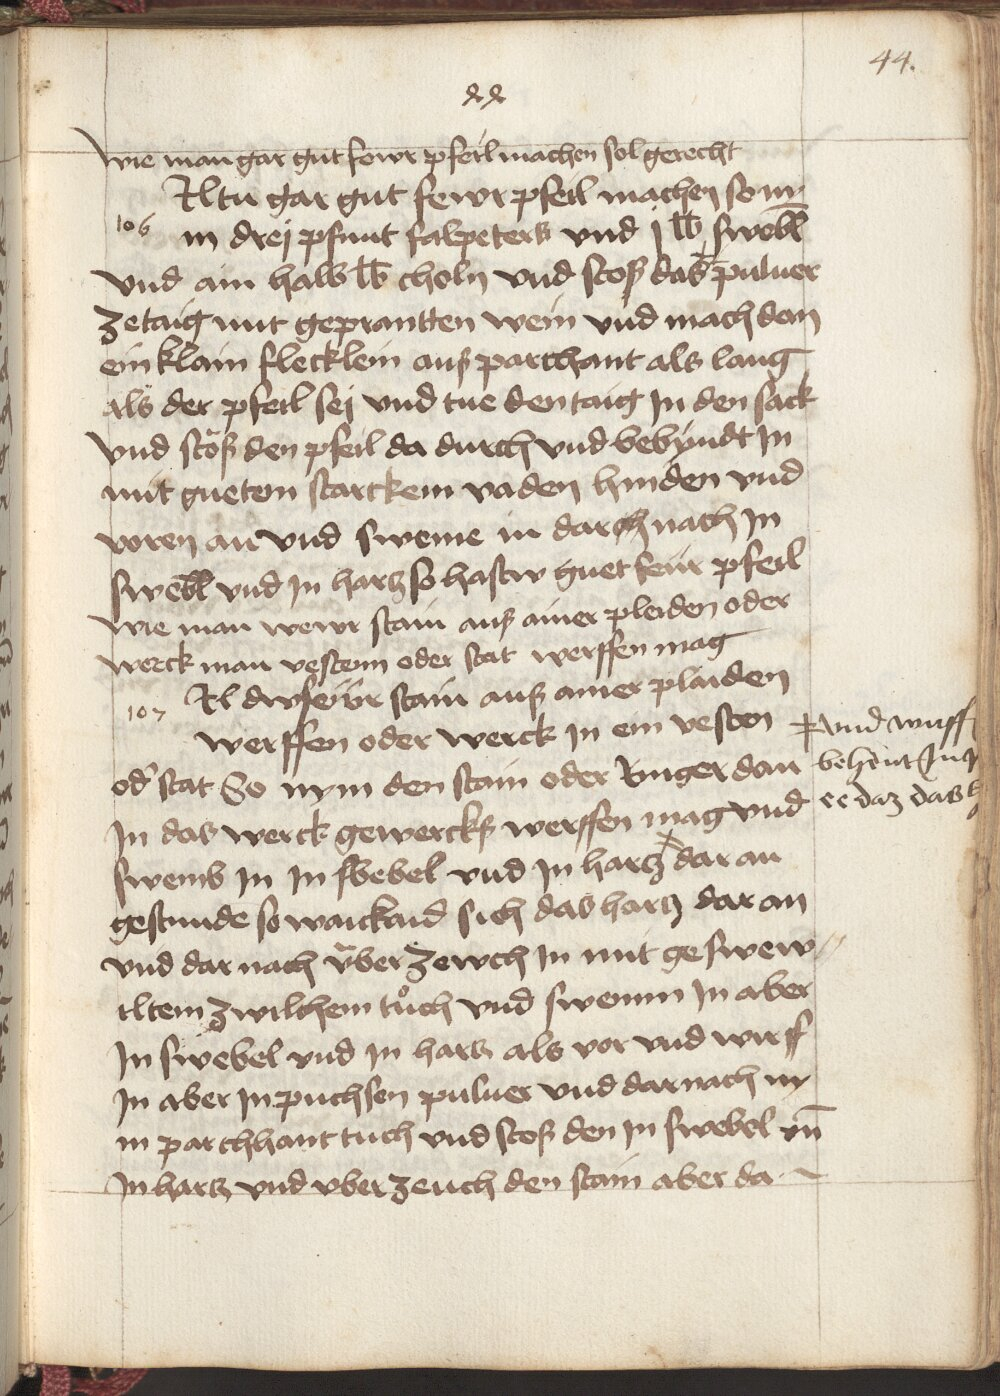 44.
Wie man gar gut fewr pfeil machen sol gerecht
Il tu gar gut fewr pfeil machen so ny
106
m drej pfunt salpeters vnd j lb swebl
vnd ain halb lb choln vnd stoß das puluer
zetaig mit geprantten wein vnd mach dan
ein klain flecklein auß parchant als lang
als der pfeil sej vnd tue den taig Jn den sack
vnd stoß den pfeil da durch vnd bebyndt Jn
mit guetem starckem vaden hinden vnd
voren an vnd sweme in darnach Jn
swebl vnd Jn hartz so hastw guet feür pfeil
Wie man wewr stain auß ainer pleiden oder
werck man vestenn oder stat werffen mag
107
Il dw feẅr stain auß ainer plaiden
werffen oder werck Jn ein vesten
od' stat So nym den stain oder dan
Jn das werck gewercks werffen mag vnd
swemb Jn Jn swebel vnd Jn hartz dar an
gestunde so waickaid sich das hartz dar an
vnd dar nach v̈ber zewch Jn mit geswew
iltem zwilchem tůch vnd swemm Jn aber
Jn swebel vnd Jn hartz als vor vnd wirff
Jn aber Jn puchsen puluer vnd darnach ny
m parchhant tuch vnd stoß den Jn swebel vn̄
Jn hartz vnd vber zeuch den stain aber da
vnd wurff
behent Jn
ee daz das